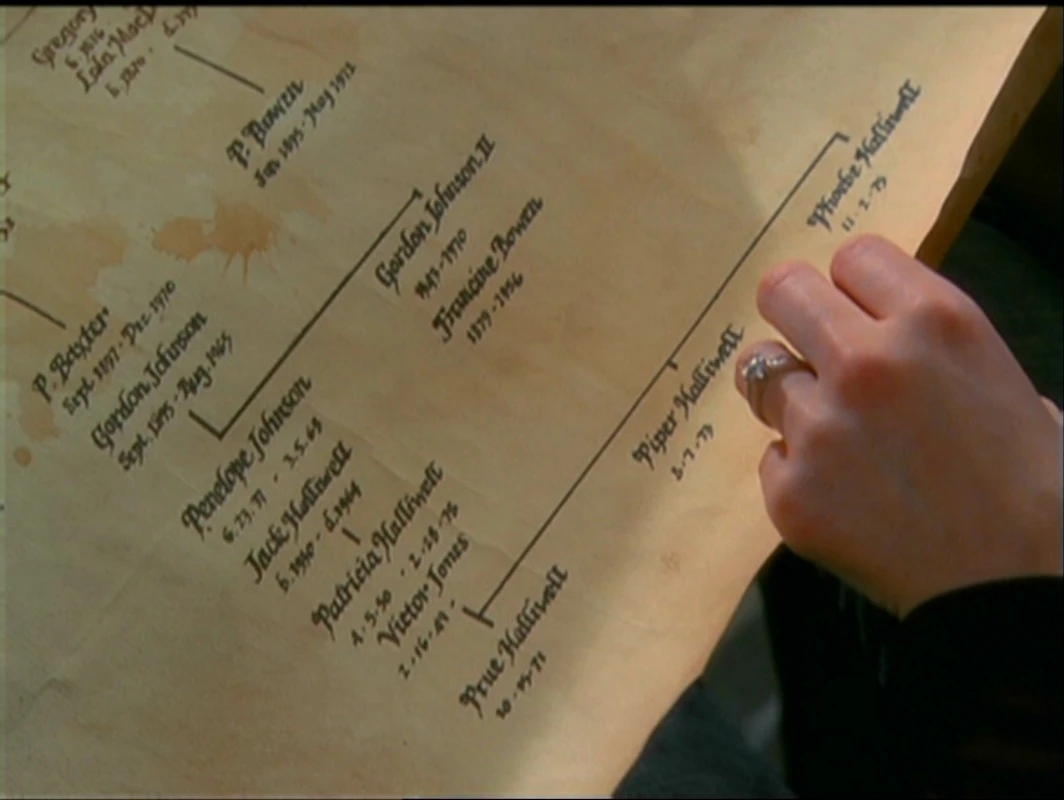 Gregory
b. 1816
b. 1820 -
P. Bowen
Jan 1895 - May 1972
P. Baxter
Sept. 1897 - Dec. 1970
Gordon Johnson
Sept. 1895 - Aug. 1965
Gordon Johnson II
Francine Bowen
1879 - 1956
Penelope Johnson
6.23.37 - 3.5.68
Jack Halliwell
b. 1930 - d. 1964
Patricia Halliwell
4-5-50 - 2-28-78
Victor Jones
Prue Halliwell
Piper Halliwell
Phoebe Halliwell
11-2-75